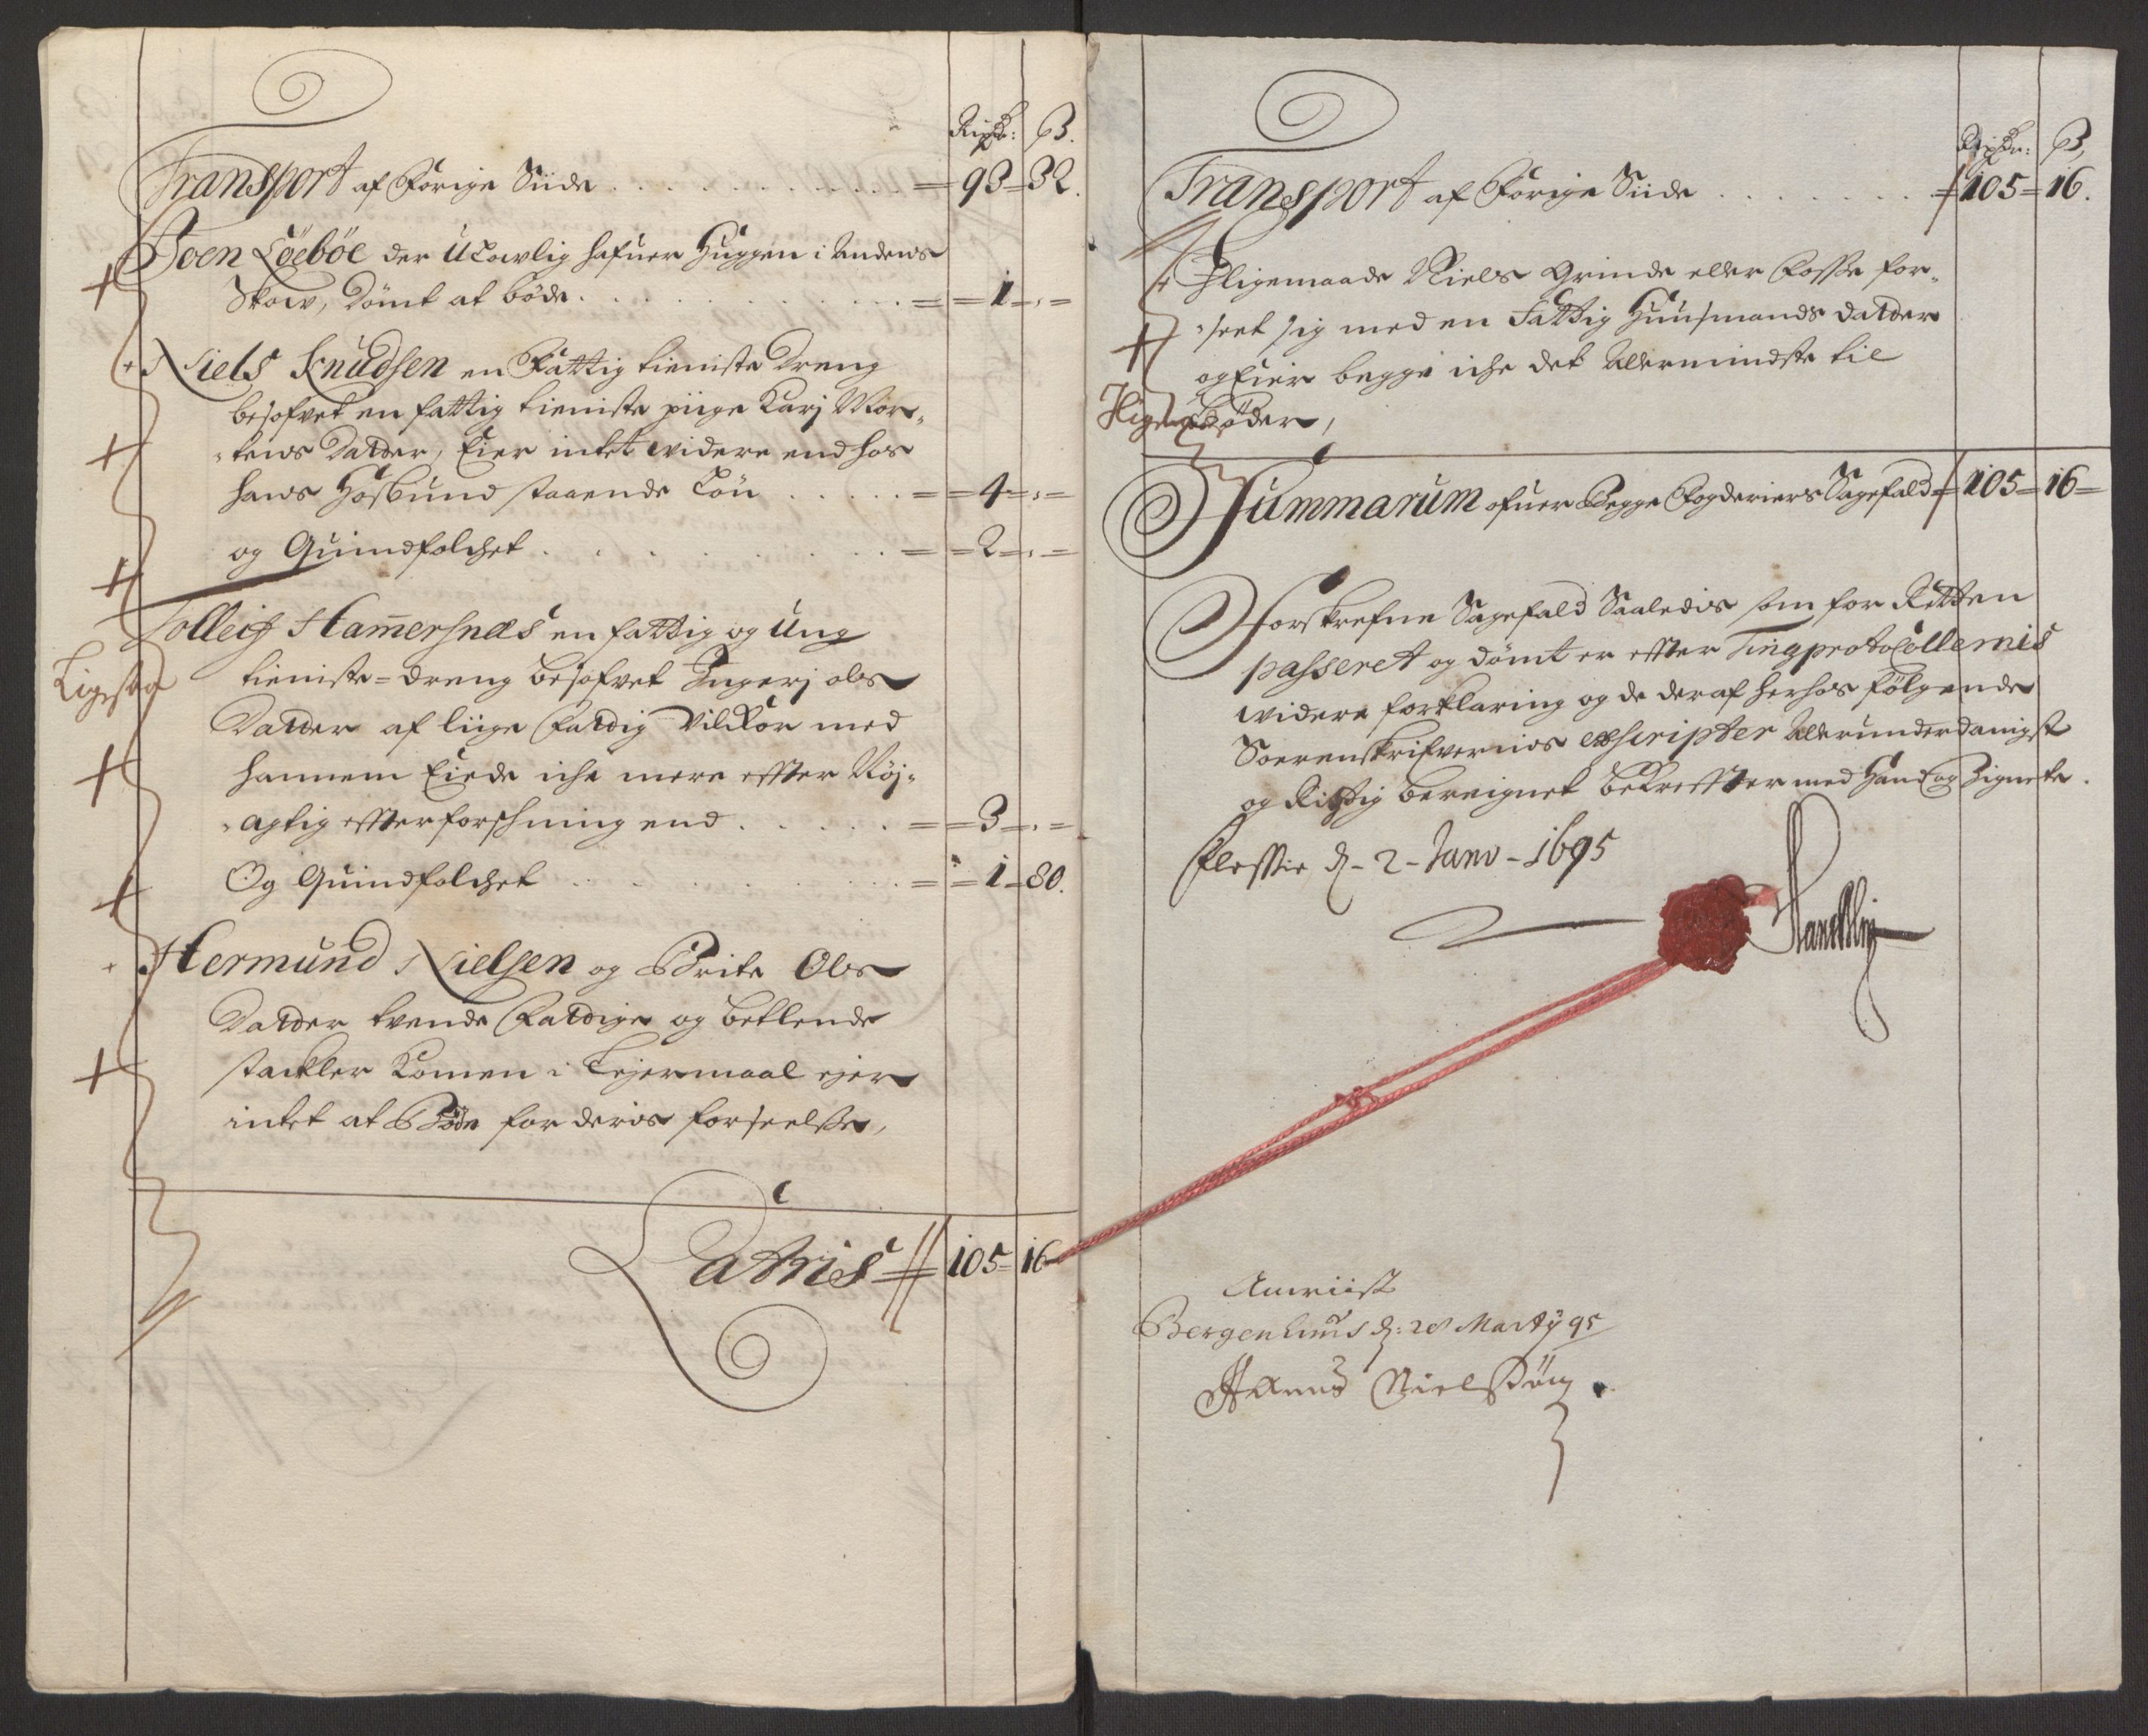 Rixdr: ß.
Transport af Forige Siide = 93 = 32.
Joen Löeböe der Ulovlig hafuer Huggen i Andens
Skow, Dømt at bøde = 1 = " =
Niels Knudsen en Fattig tieniste Dreng
besofvet en fattig tieniste piige Karj Mor-
tens Datter, Eier intet widere end hos
hans Hosbund staaende Løn = 4 = " =
og Quindfolchet = 2 = " =
Tolleif Ham̄ersnæs en fattig og Ung
Ligesaa
tieniste-dreng besofvet Ingerj Ols
Datter af liige fattig Vilkor med
hannem Eiede iche mere effter Nøj-
agtig effterforschning end = 3 = " =
Og Quindfolchet = 1 = 80.
Hermund Nielsen og Brite Ols
Datter tvende Fattige og betlende
stackler Komen i Leyermaal ejer
intet at Bøde for deris forseelse,
Latris 105 = 16
Rixdr: ß,
Transport af Forige Siide = 105 = 16.
Jligemaade Niels Grinde eller Fosse for-
seet sig med en Fattig Huusmands datter
og Eier begge iche det Allermindste til
Bøder,
Summarum ofuer Begge Fogderiers Sagefald = 105 = 16 =
Forskrefne Sagefald Saaledis som for Retten
passeret og dømt er effter Tingprotocollernis
widere forklaring og de deraf herhos følgende
Sorenskrifvernis exscripter Allerunderdanigst
og Rigtig beregnet bekreffter med Hand og Zignete.
Flessie d. 2 Janv 1695
Anwiist
Bergenhuus d: 28 Martÿ 95
Hanns Nielssøn